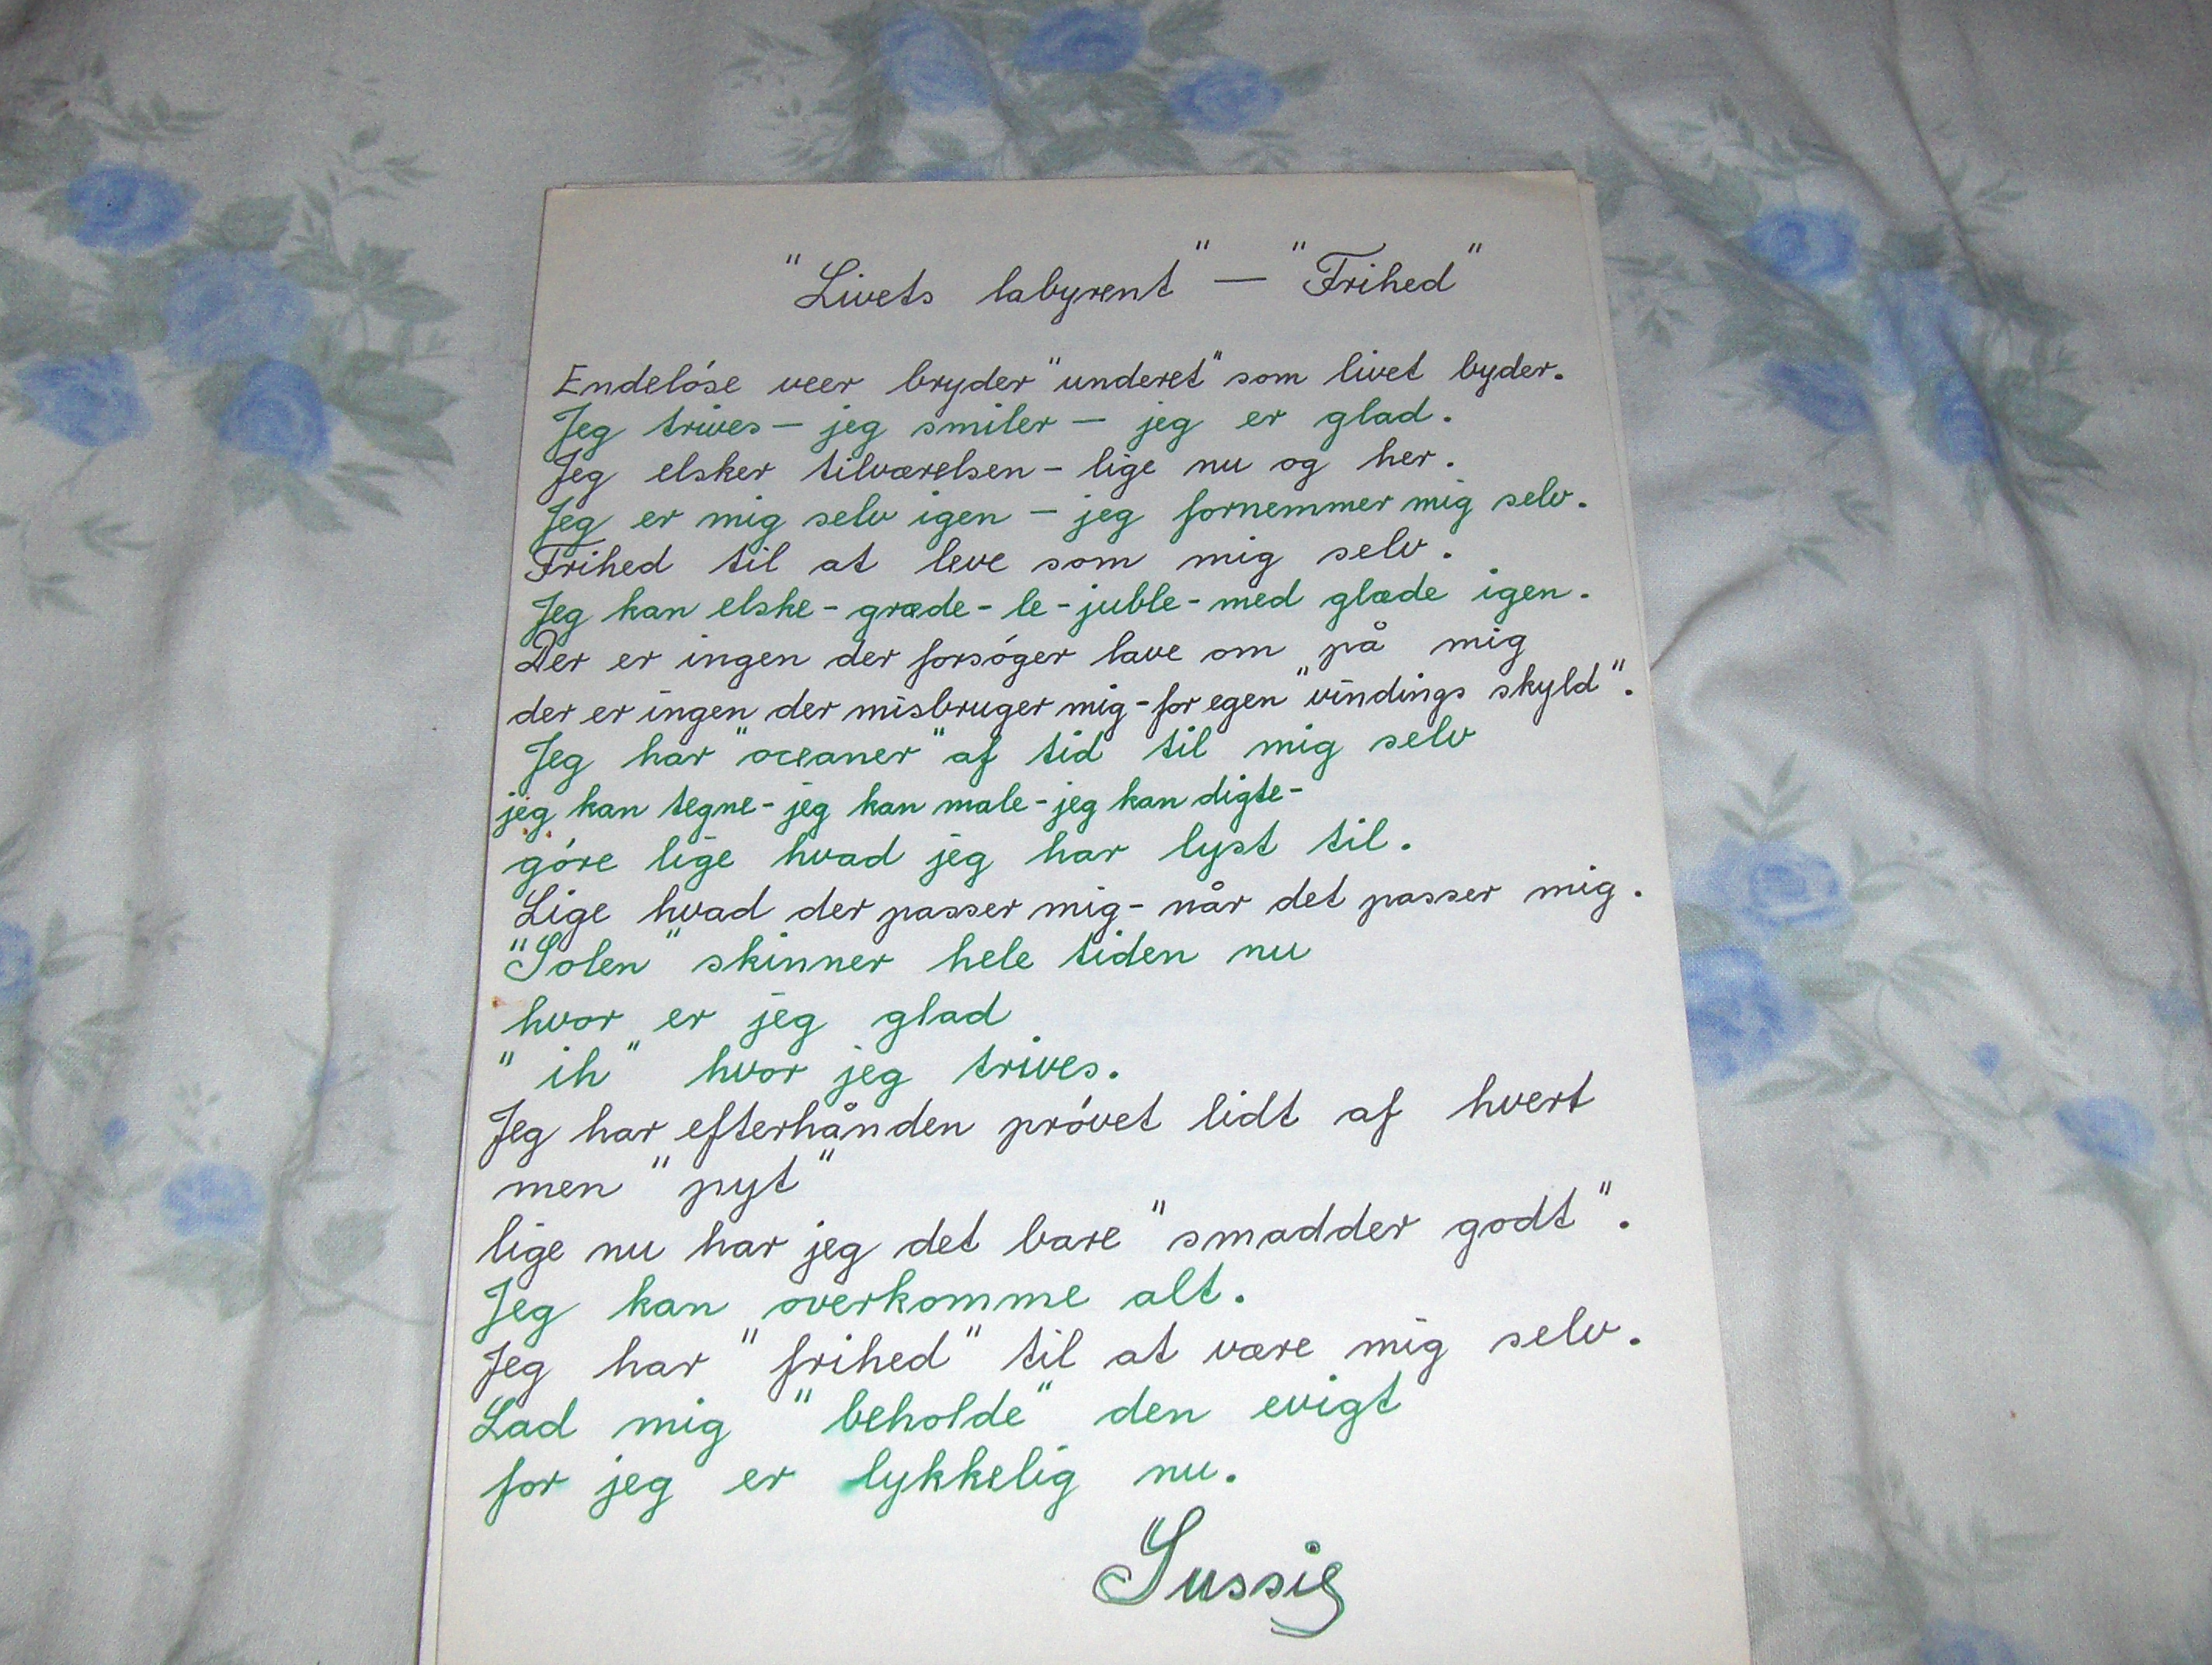 "Livets labyrent" — "Frihed"
Endelóse veer bryder "underet" som livet byder.
Jeg trives — jeg smiler — jeg er glad.
Jeg elsker tilværelsen - lige nu og her.
Jeg er mig selv igen — jeg fornemmer mig selv.
Frihed til at leve som mig selv.
Jeg kan elske - græde - le - juble - med glæde igen.
Der er ingen der forsóger lave om på mig
der er ingen der misbruger mig - for egen "vindings skyld".
Jeg har "oceaner" af tid til mig selv
jeg kan tegne - jeg kan male - jeg kan digte -
góre lige hvad jeg har lyst til.
Lige hvad der passer mig - når det passer mig.
"Solen" skinner hele tiden nu
hvor er jeg glad
"ih" hvor jeg trives.
Jeg har efterhånden próvet lidt af hvert
men "pyt"
lige nu har jeg det bare "smadder godt".
Jeg kan overkomme alt.
Jeg har "frihed" til at være mig selv.
Lad mig "beholde" den evigt
for jeg er lykkelig nu.
Sussie